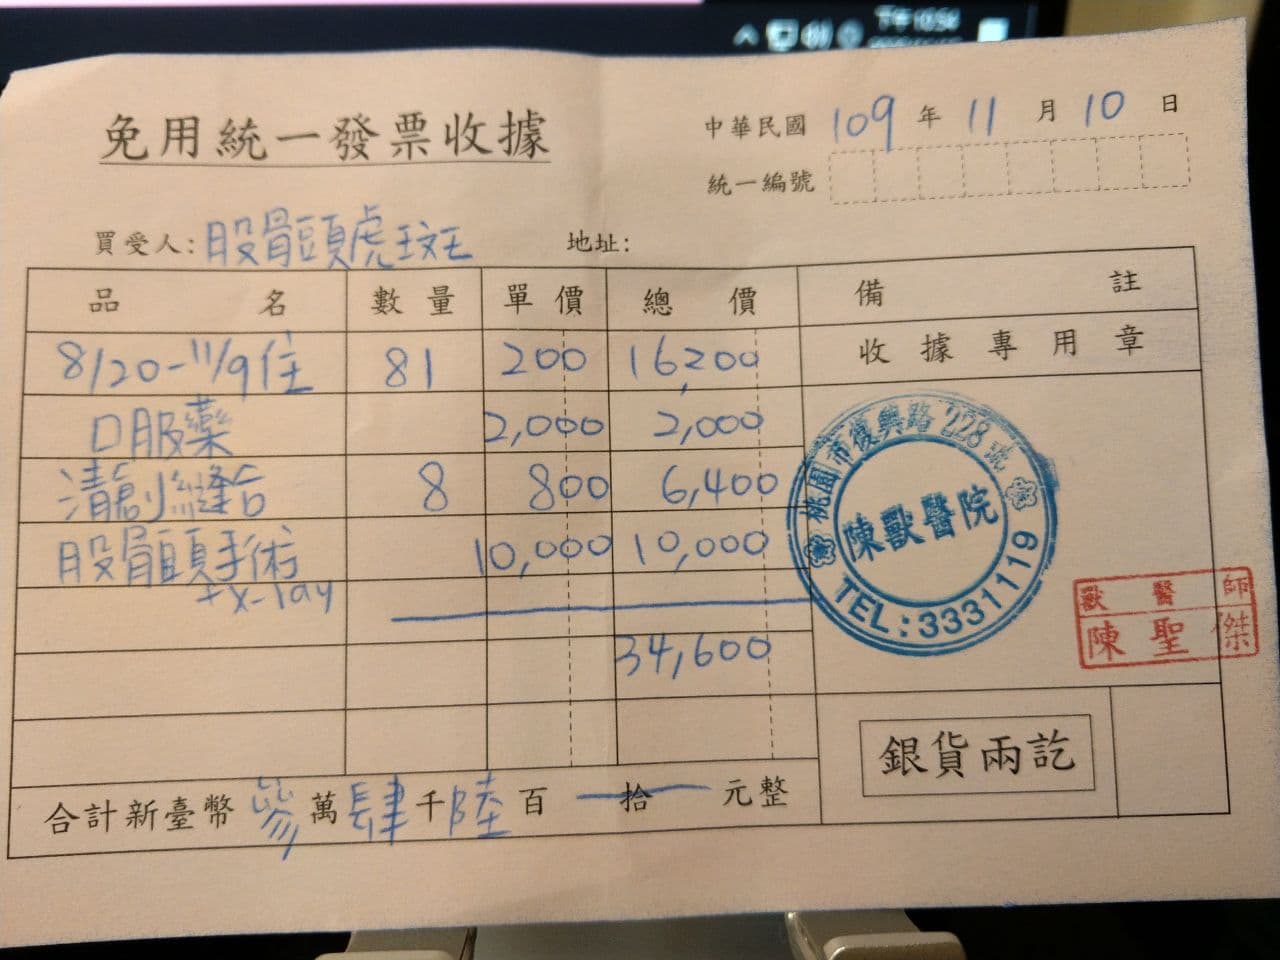 下午 10:54
免用統一發票收據
中華民國 109 年 11 月 10 日
統一編號
買受人: 股骨頭虎斑 地址:
品名 數量 單價 總價 備註
收據專用章
8/20-11/9住 81 200 16,200
口服藥 2,000 2,000
清創縫合 8 800 6,400
股骨頭手術 10,000 10,000
+x-ray
34,600
桃園市復興路228號
陳獸醫院
TEL:3331119
獸醫師
陳聖傑
銀貨兩訖
合計新臺幣 參 萬 肆 千 陸 百 拾 元整